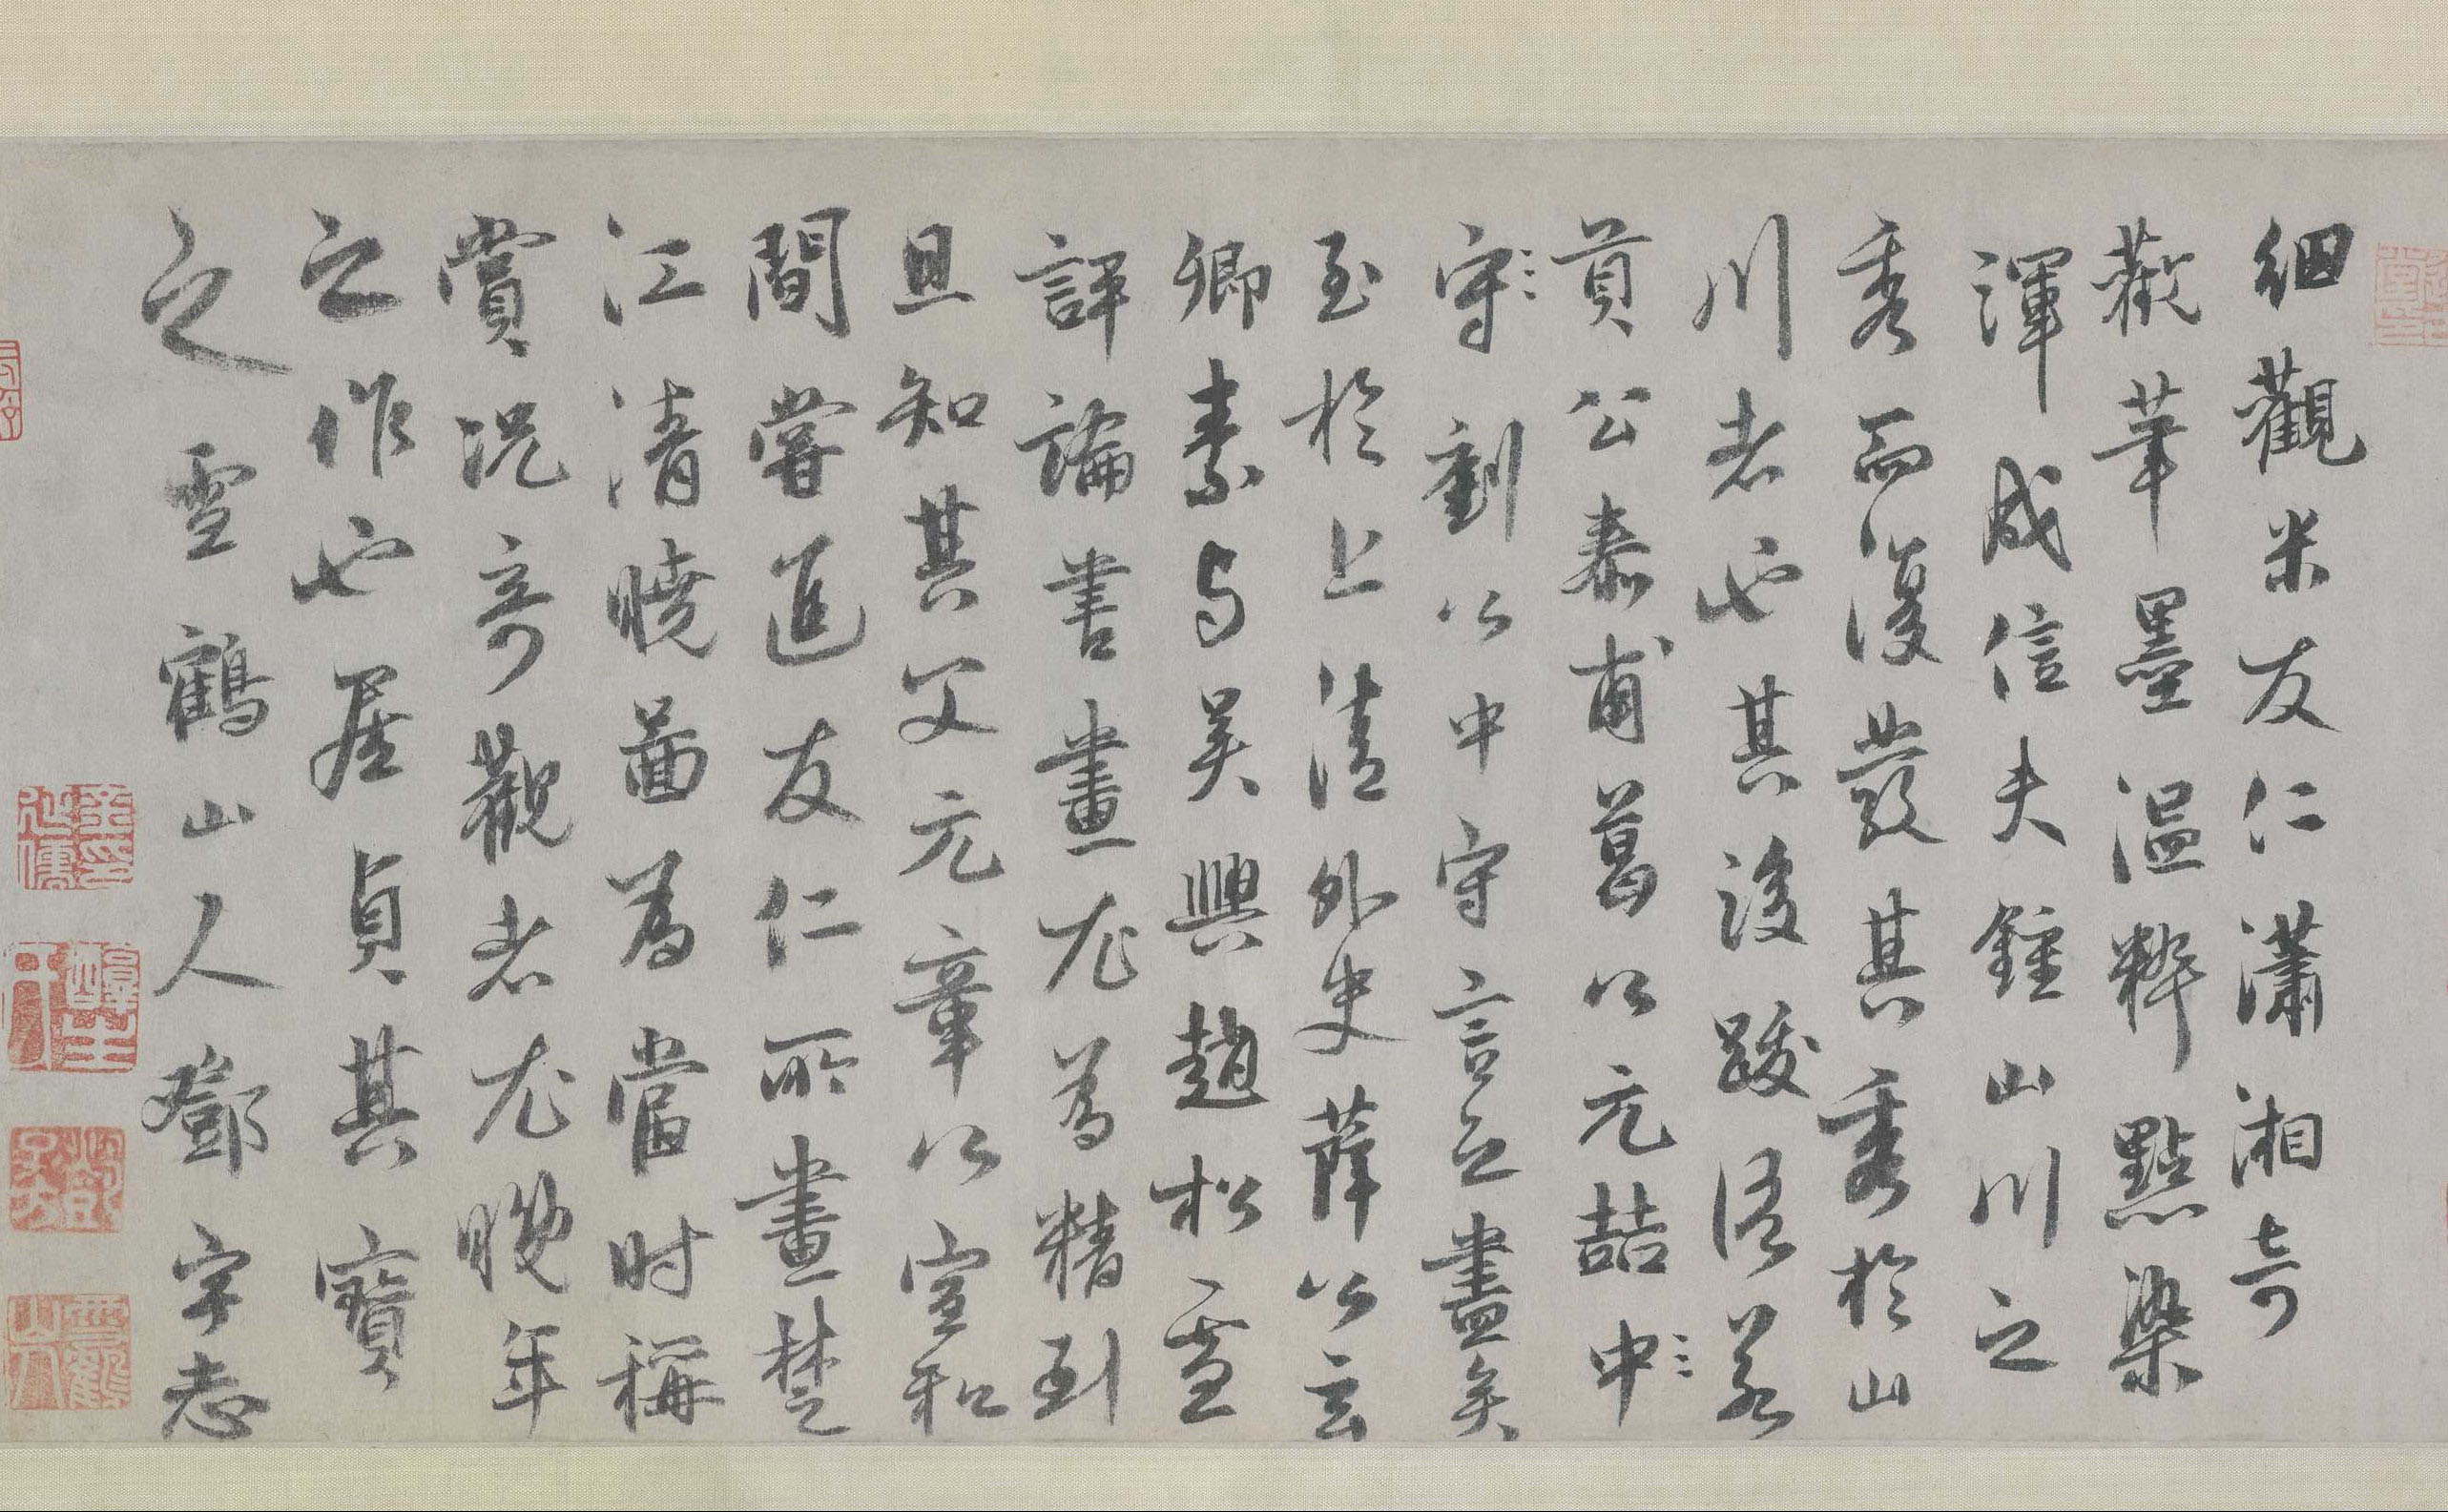 細觀米友仁瀟湘奇
觀筆墨溫粹點染
渾成信夫鍾山川之
秀而復發其秀於山
川者也其後跋語若
貢公泰甫葛公元喆中
守劉公中守言之盡矣
至於上清外史薛公玄
卿素与吳興趙松雪
評論書畫尤為精到
且知其父元章公宣和
間嘗進友仁所畫楚
江清曉圖為當時稱
賞況奇觀者尤晚年
之作也居貞其寶
之雲鶴山人鄧宇志